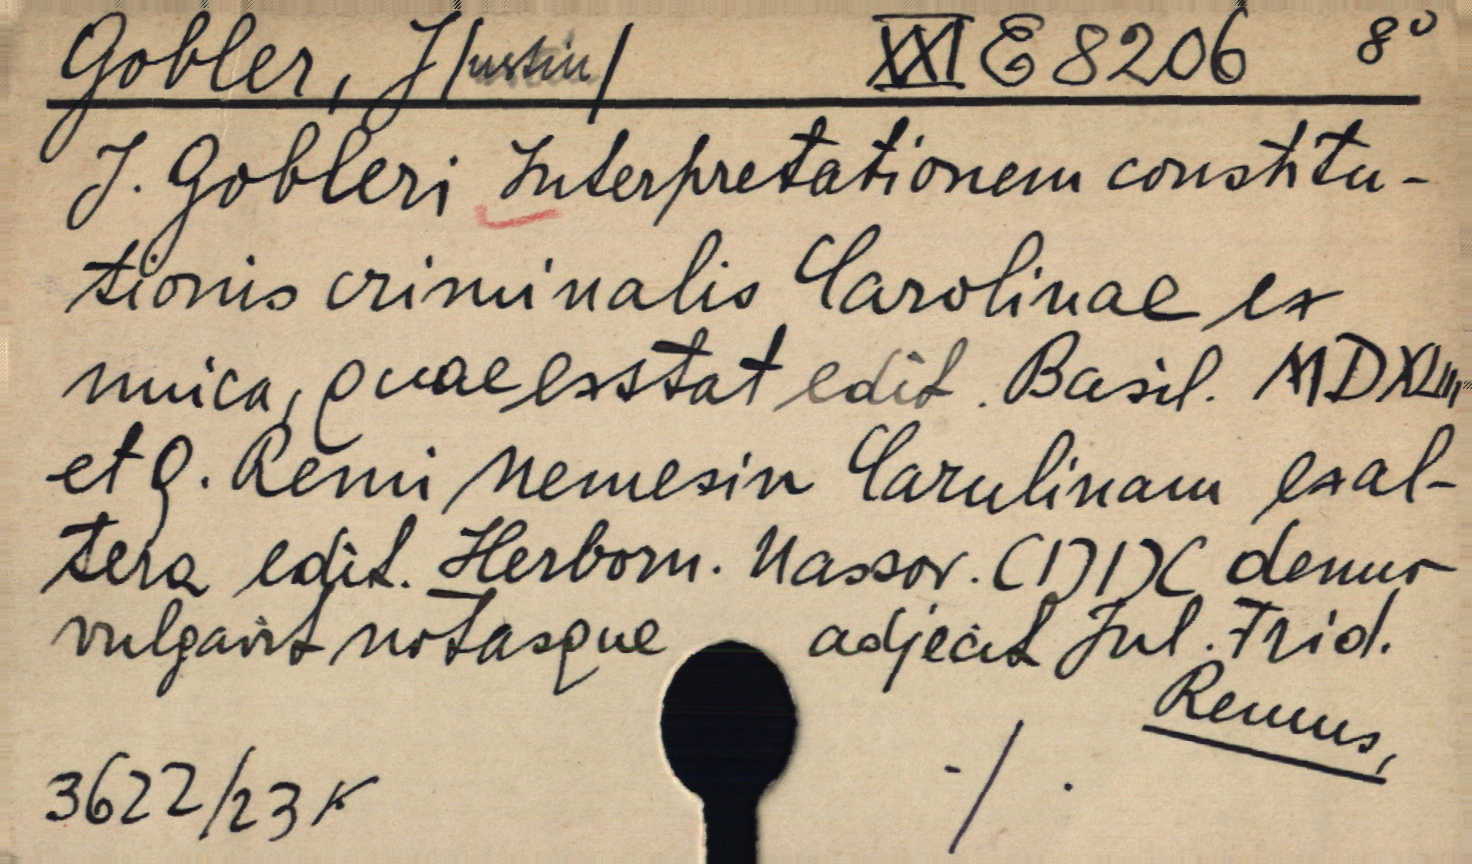 Gobler, J/ustin/ XXI E 8206 8°
J. Gobleri Interpretationem constitu-
tionis criminalis Carolinae ex
unica, quae exstat edit. Basil. MDXLIII,
et G. Remi Nemesin Carulinam ex al-
tera edit. Herborn. Nassov. CIƆIƆC denuo
vulgavit notasque adjecit Jul. Frid.
Remus,
3622/23 K -/.